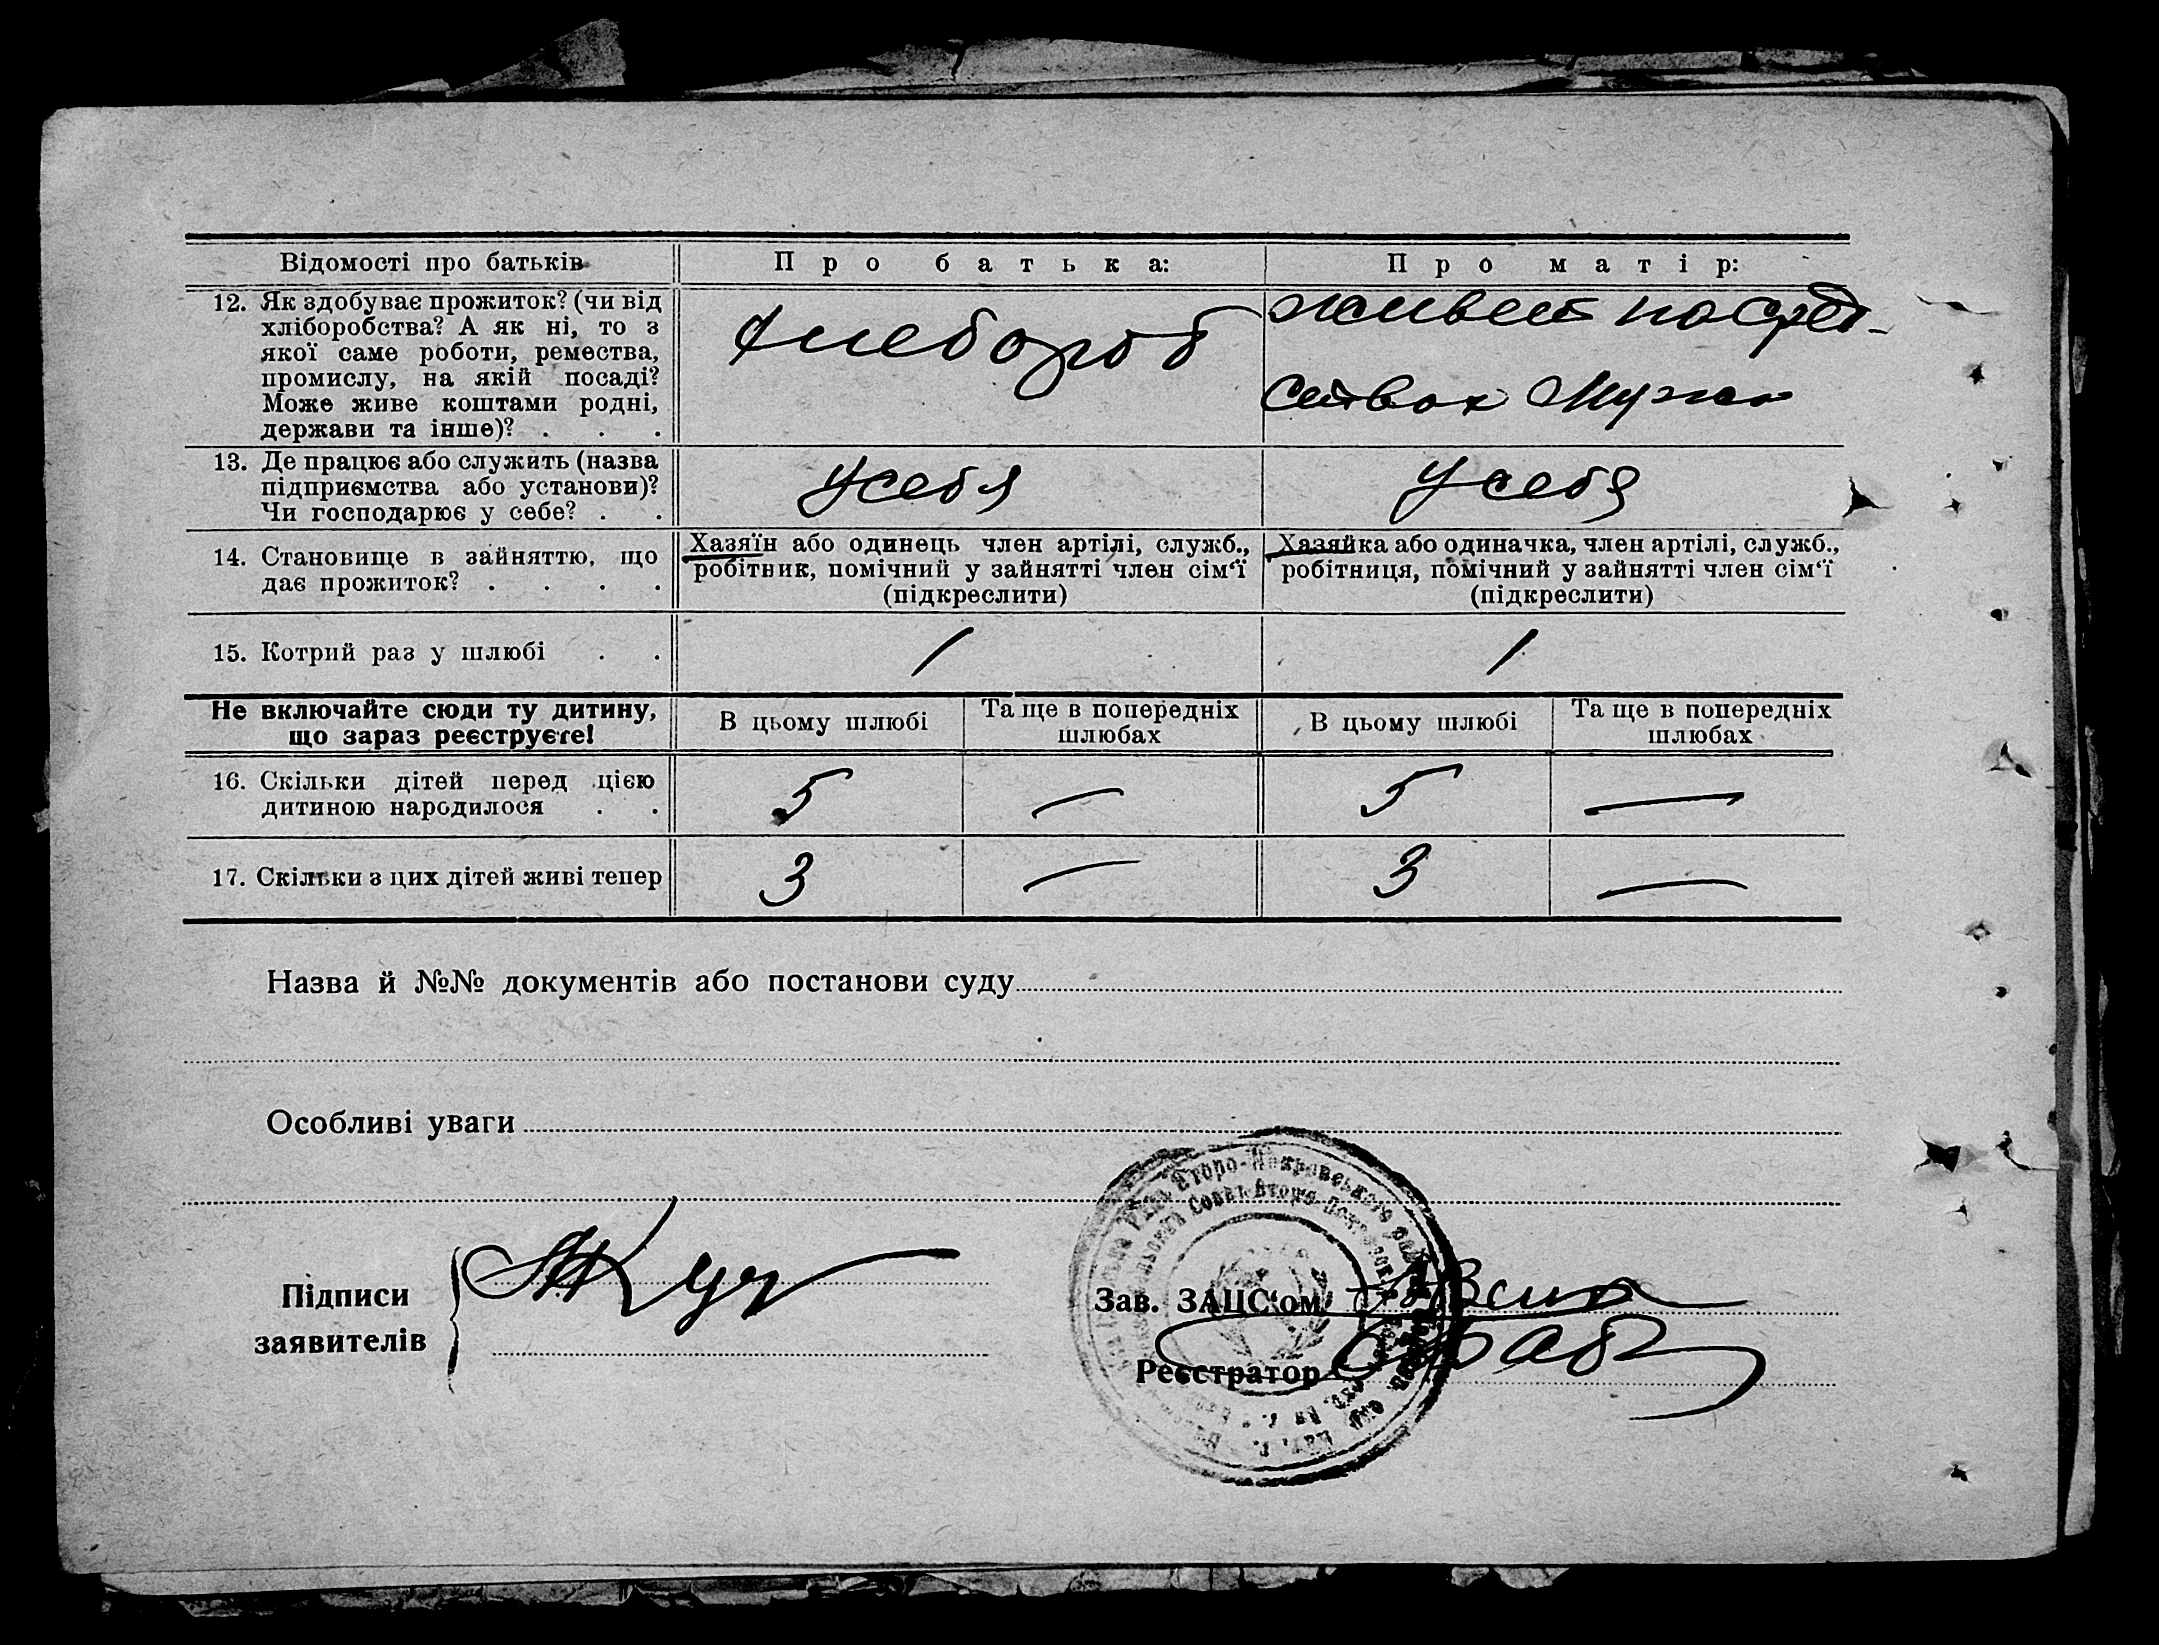 Відомості про батьків Про батька: Про матір:
12. Як здобуває прожиток? (чи від
хліборобства? А як ні, то з
якої саме роботи, ремества,
промислу, на якій посаді?
Може живе коштами родні,
держави та інше)? . . .
хлебороб
живет на сред-
ствах мужа
13. Де працює або служить (назва
підприємства або установи)?
Чи господарює у себе? . .
у себя
у себя
14. Становище в зайняттю, що
дає прожиток? . . . .
Хазяїн або одинець член артілі, служб.,
робітник, помічний у зайнятті член сім‘ї
(підкреслити)
Хазяйка або одиначка, член артілі, служб.,
робітниця, помічний у зайнятті член сім‘ї
(підкреслити)
15. Котрий раз у шлюбі . . 1 1
Не включайте сюди ту дитину,
що зараз реєструєте!
В цьому шлюбі
Та ще в попередніх
шлюбах
В цьому шлюбі
Та ще в попередніх
шлюбах
16. Скільки дітей перед цією
дитиною народилося . .
5 — 5 —
17. Скільки з цих дітей живі тепер 3 — 3 —
Назва й №№ документів або постанови суду
Особливі уваги
Підписи
заявителів
Зав. ЗАЦС‘ом
Реєстратор